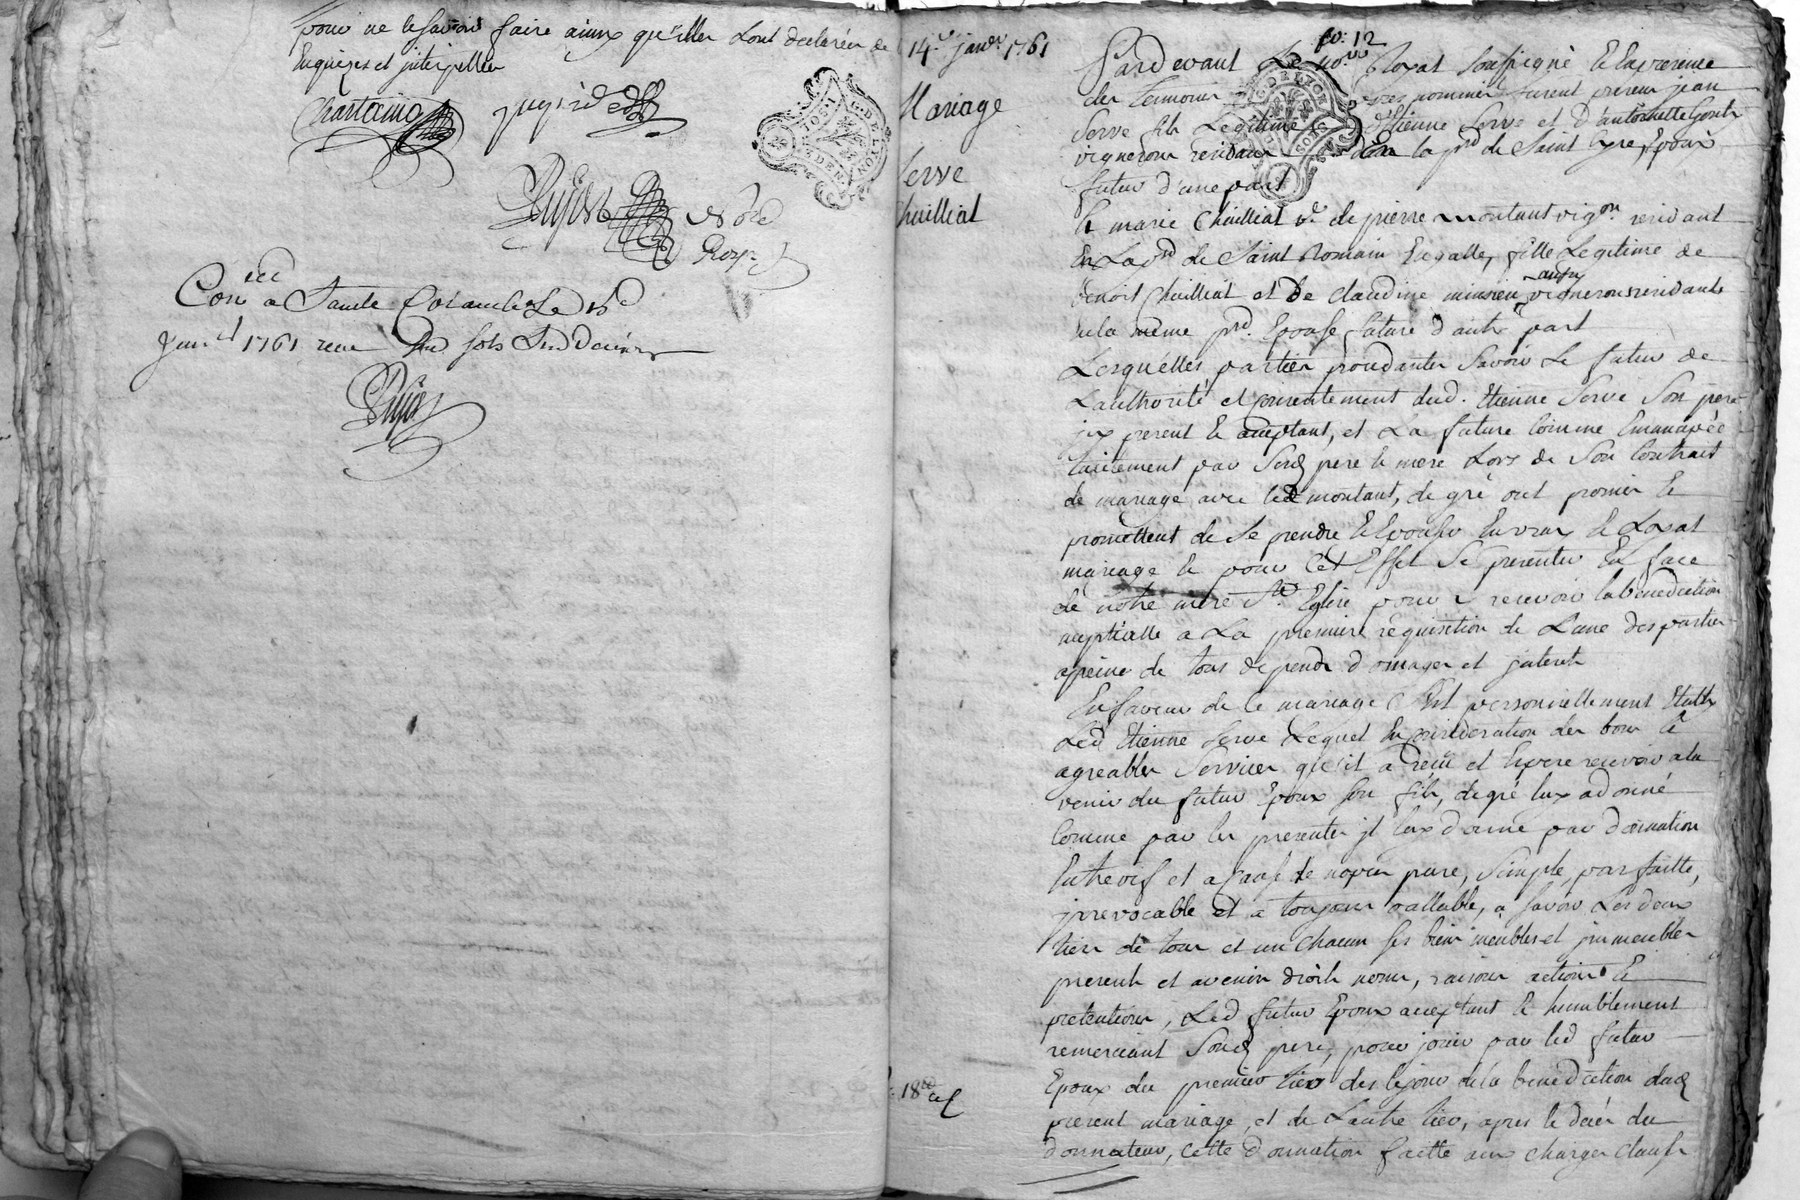 pour ne le savoir faire ainsy qu'elles Lont declarées de
Enquizes et jnterpellés
Chartoine
Con a Sainte Colombe Le 15e
Janer 1761 recu sols Six Deniers
14e janer 1761
Mariage
Serve
Chuilliat
fo. 12
Pardevant Le no.re Royal soussigné Et En presence
des temoins Bas nommés furent presens jean
Serve fils Legitime d'Etienne Serve et d'antoinette
vignerons residans dans la psse de Saint Cyre, Epoux
futur d'une part
Et marie Chuilliat ve. de pierre montant vigon. residant
En La psse de Saint Romain Engalle, fille Legitime de
benoit Chuilliat et de claudine vignerons residants
En la même psse. Epouse future d'autre part
Lesquelles parties procedantes Savoir Le futur de
L'authorité et consentement dud. Etienne Serve Son pere
jcy present Et aceptant, et La future Comme Emancipée
tacitement par Sesd pere Et mere Lors de Son Contrait
de mariage avec led montant, de gré ont promis Et
promettent de Se prendre Et Epouser En vray Et Loyal
mariage Et pour Cet Effet Se presenter En face
de notre mere Ste Eglise pour y recevoir la benediction
nuptialle a La premiere requisition de L'une des parties
apeine de tous depends domages et jnterets
En faveur de Ce mariage s'Est personnellement Etably
Led Etienne Serve Lequel En consideration des bons Et
agreables Services qu'il a reçu et Espere recevoir a la
venir du futur Epoux son fils, de gré luy a donné
Comme par les presentes jl luy donne par donnation
Entre vifs et a Cause de noces pure, Simple, parfaitte,
jrrevocable et a toujours vallable, a savoir Les deux
tiers de tous et un chacun ses biens meubles et jmmeubles
presents et avenirs droits noms, raisons actions Et
pretentions, Led futur Epoux aceptant Et humblement
remerciant Sond pere, pour jouir par led futur
Epoux du premier tiers des le jour de la benediction dud
present mariage, et de L'autre tiers, apres le decés du
donnateur, Cette donnation faitte aux charges clauses